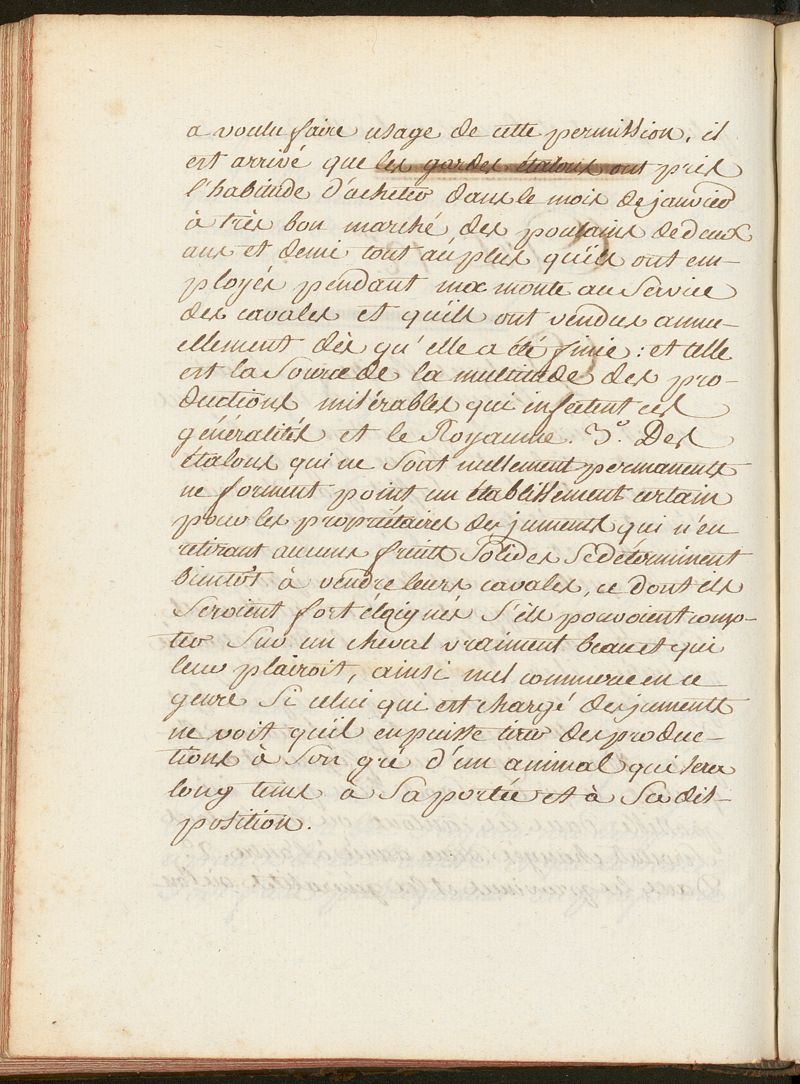 a voulu faire usage de cette permission, il
est arrivé que les gardes étalons ont pris
l'habitude d'acheter dans le mois de janvier
à très bon marché des poulains de deux
ans et demi tout au plus qu'ils ont em-
ployés pendant monte au Service
des cavales et qu'ils ont vendus annu-
ellement dès qu'elle a été finie : et telle
est la Source de la multitude des pro-
ductions misérables qui infectent ces
généralités et le Royaume. 3.º Des
étalons qui ne Sont nullement permanents
ne forment point un établissement certain
pour les propriétaires des juments qui n'en
retirant aucuns fruits Solides Se déterminent
bientôt à vendre leurs cavales, ce dont ils
Seroient fort éloignés S'ils pouvoient comp-
ter Sur un cheval vraiment beau et qui
leur plairoit, ainsi nul commerce en ce
genre Si celui qui est chargé des juments
ne voit qu'il en puisse tirer des produc-
tions à Son gré d'un animal qui sera
long tems à Sa portée et à Sa dis-
position.